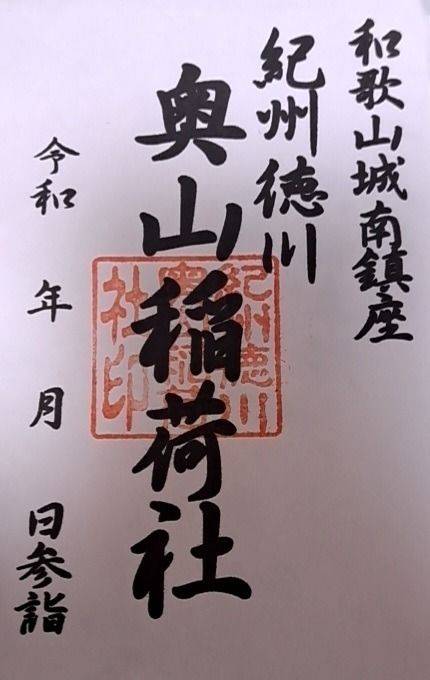 和歌山城南鎮座
紀州徳川
奥山稲荷社
令和 年 月 日参詣
紀州徳川
社印